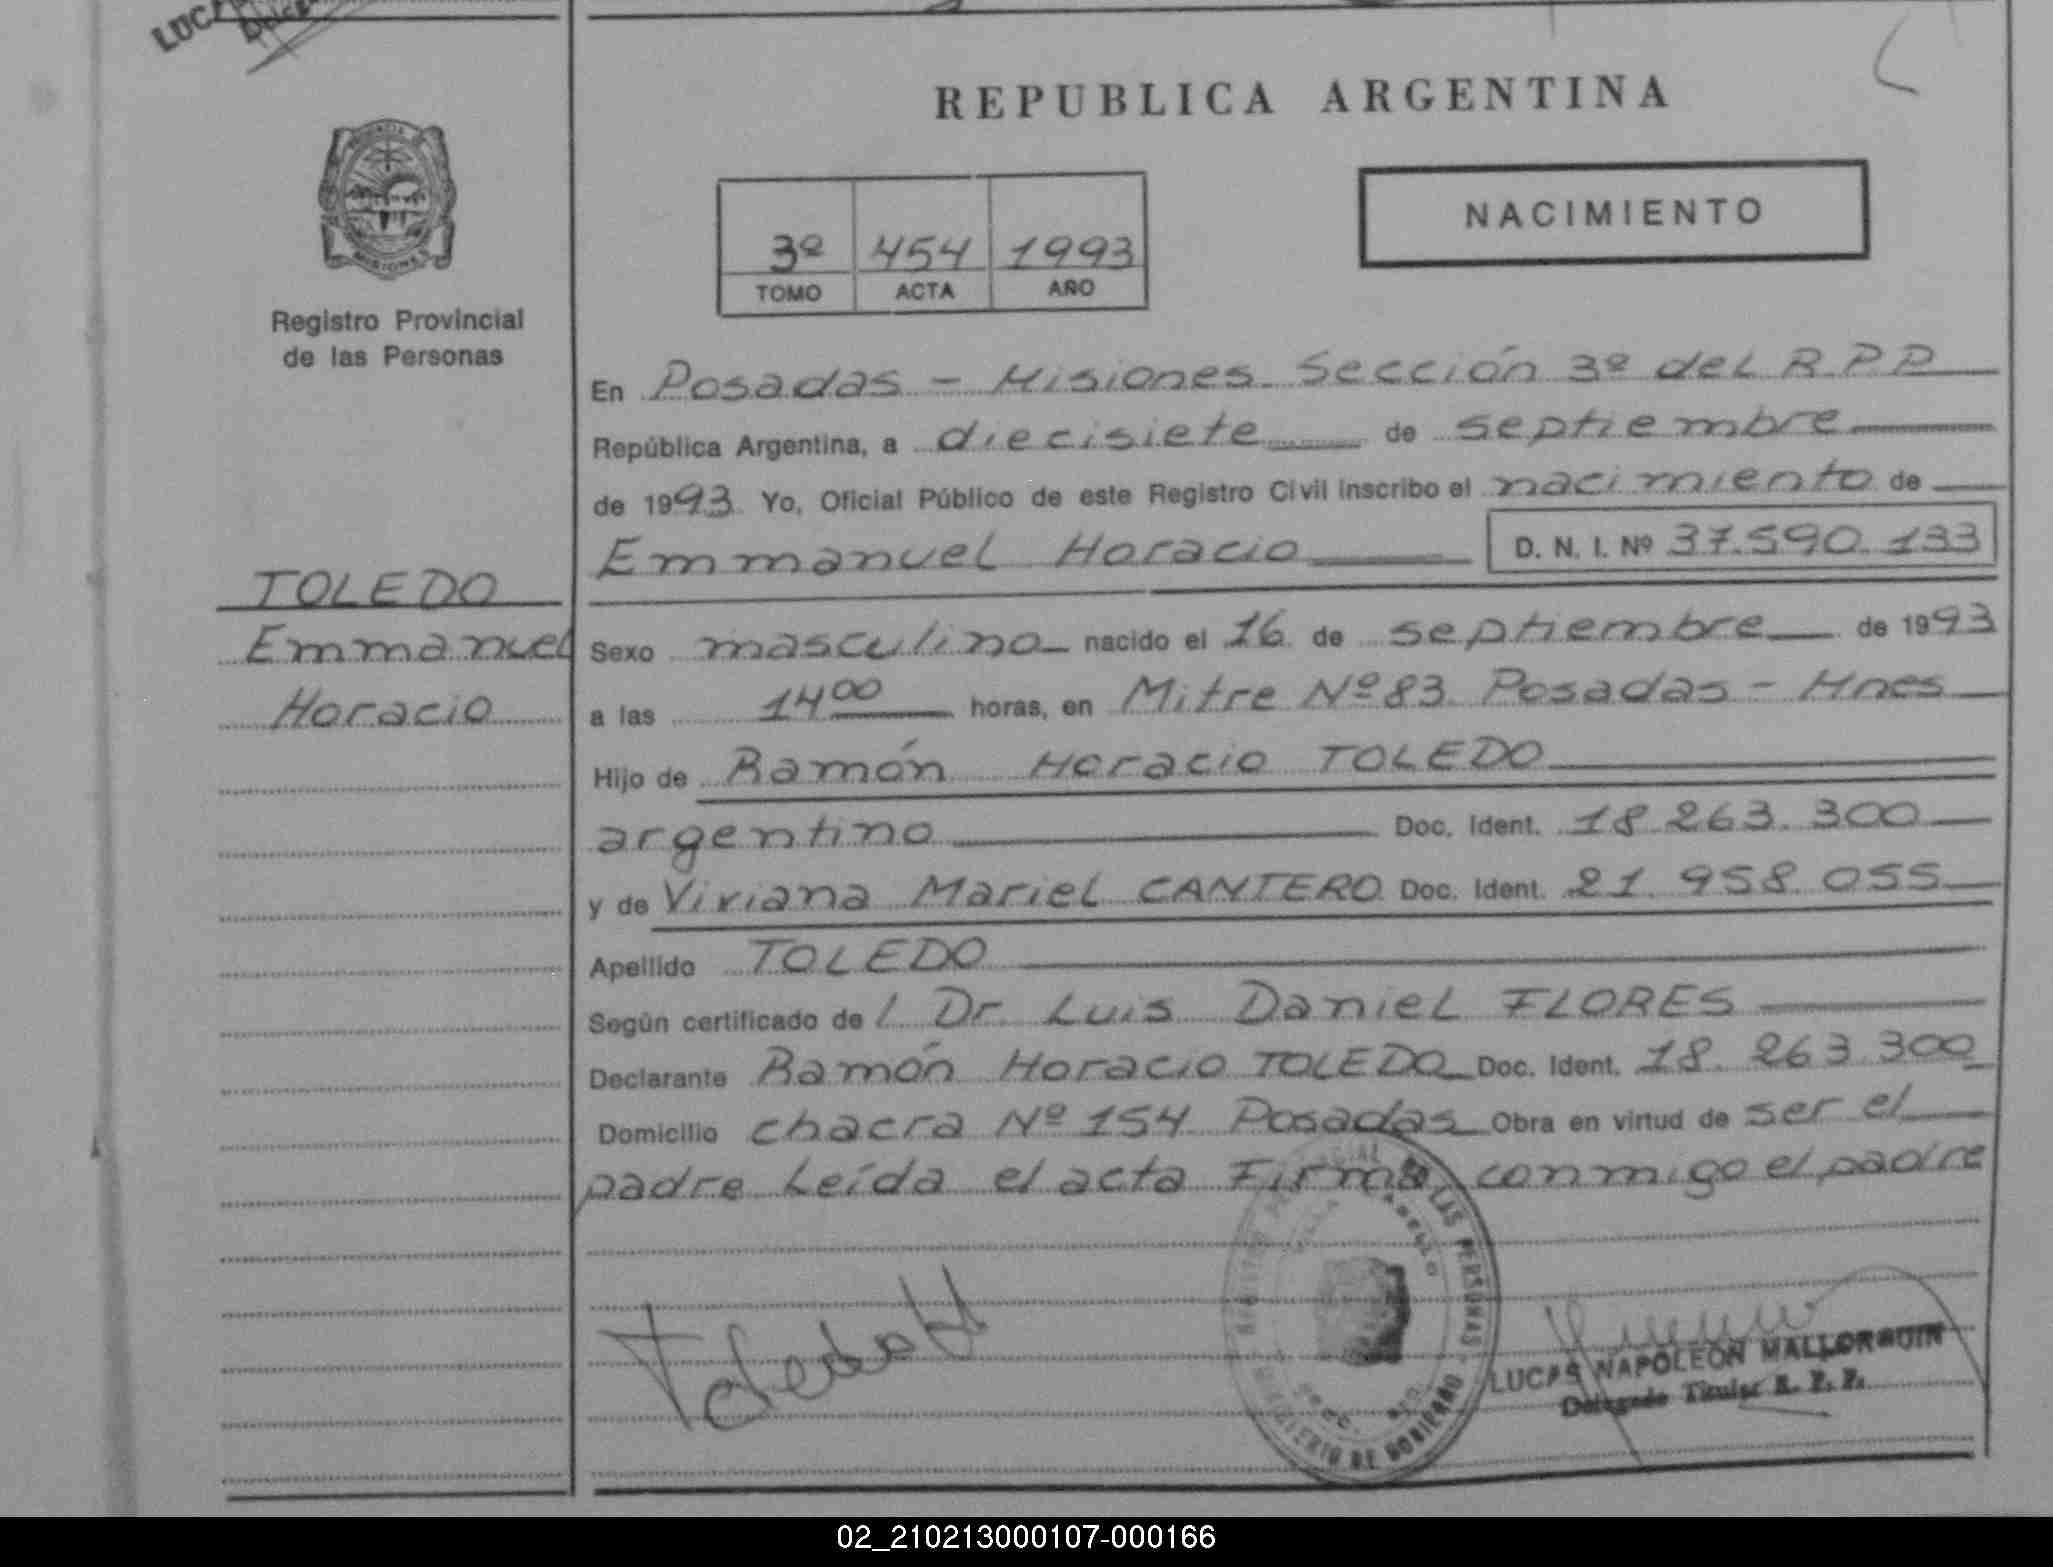 REPUBLICA ARGENTINA
NACIMIENTO
3º 454 1993
TOMO ACTA AÑO
MISIONES
Registro Provincial
de las Personas
En Posadas - Misiones Sección 3º del R.P.P
República Argentina, a diecisiete de septiembre
de 1993 Yo, Oficial Público de este Registro Civil inscribo el nacimiento de
Emmanuel Horacio D. N. I. Nº 37.590.133
TOLEDO
Emmanuel
Horacio
Sexo masculino nacido el 16 de septiembre de 1993
a las 14 00 horas, en Mitre Nº 83 Posadas - Mnes
Hijo de Ramón Horacio TOLEDO
argentino Doc. Ident. 18.263.300
y de Viviana Mariel CANTERO Doc. Ident. 21.958.055
Apellido TOLEDO
Según certificado de l Dr. Luis Daniel FLORES
Declarante Ramón Horacio TOLEDO Doc. Ident. 18.263.300
Domicilio chacra Nº 154 Posadas Obra en virtud de ser el
padre Leída el acta Firma conmigo el padre
Toledo H
DE LAS PERSONAS
MINISTERIO DE GOBIERNO
LUCAS NAPOLEON MALLORQUIN
Delegado Titular R. P. P.
02_210213000107-000166